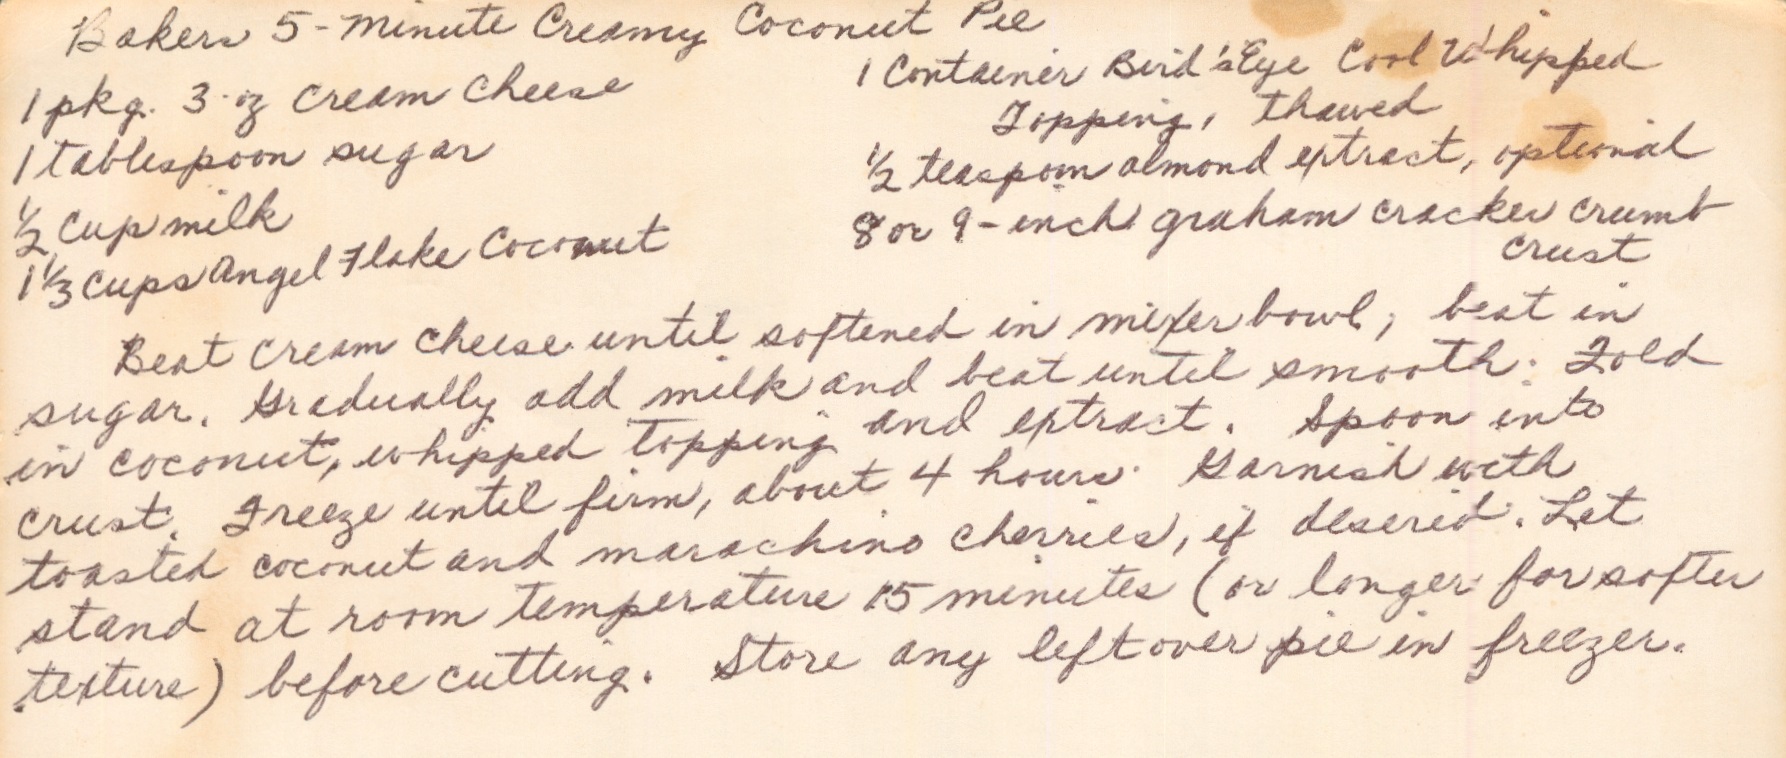 Bakers 5-Minute Creamy Coconut Pie
1 pkg. 3-oz Cream Cheese
1 tablespoon sugar
1/2 Cup milk
1 1/3 Cups Angel Flake Coconut
1 Container Bird'sEye Cool Whipped
Topping, thawed
1/2 teaspoon almond extract, optional
8 or 9-inch graham cracker crumb
crust
Beat cream cheese until softened in mixer bowl; beat in
sugar. Gradually add milk and beat until smooth. Fold
in coconut, whipped topping and extract. Spoon into
crust. Freeze until firm, about 4 hours. Garnish with
toasted coconut and marachino cherries, if desired. Let
stand at room temperature 15 minutes (or longer for softer
texture) before cutting. Store any leftover pie in freezer.